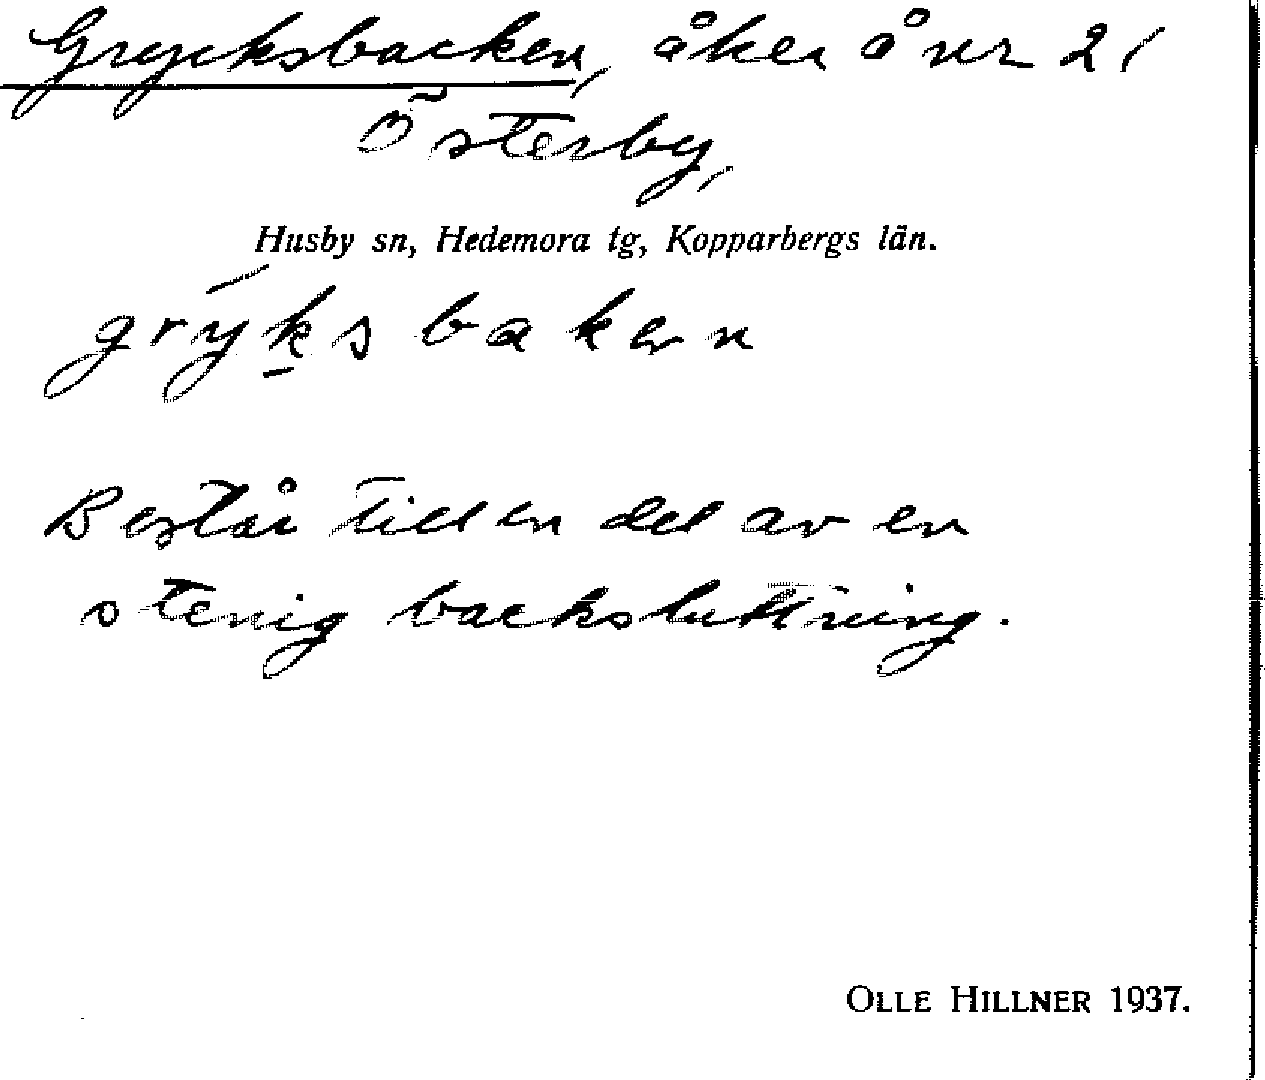 Grycksbacken, åker å nr 2,
Österby,
Husby sn, Hedemora tg, Kopparbergs län.
grýksbaken
Består till en del av en
stenig backsluttning.
OLLE HILLNER 1937.